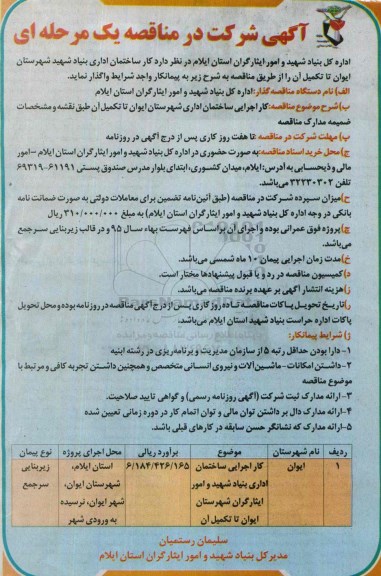 آگهی شرکت در مناقصه یک مرحله ای
اداره کل بنیاد شهید و امور ایثارگران استان ایلام در نظر دارد کار ساختمان اداری بنیاد شهید شهرستان
ایوان تا تکمیل آن را از طریق مناقصه به شرح زیر به پیمانکار واجد شرایط واگذار نماید.
الف) نام دستگاه مناقصه گذار: اداره کل بنیاد شهید و امور ایثارگران استان ایلام
ب) شرح موضوع مناقصه: کار اجرایی ساختمان اداری شهرستان ایوان تا تکمیل آن طبق نقشه و مشخصات
ضمیمه مدارک مناقصه
پ) مهلت شرکت در مناقصه: تا هفت روز کاری پس از درج آگهی در روزنامه
ج) محل خرید اسناد مناقصه: به صورت حضوری در اداره کل بنیاد شهید و امور ایثارگران استان ایلام -امور
مالی و ذیحسابی به آدرس: ایلام، میدان کشوری، ابتدای بلوار مدرس صندوق پستی ۶۱۱۹۱-۶۹۳۱۹
تلفن ۳۲۲۳۰۳۰۲ می باشد.
ح) میزان سپرده شرکت در مناقصه (طبق آئین نامه تضمین برای معاملات دولتی به صورت ضمانت نامه
بانکی در وجه اداره کل بنیاد شهید و امور ایثارگران استان ایلام) به مبلغ ۳۱۰/۰۰۰/۰۰۰ ریال
چ) پروژه فوق عمرانی بوده و اجرای آن براساس فهرست بهاء سال ۹۵ و در قالب زیربنایی سرجمع
می باشد.
خ) مدت زمان اجرایی پیمان ۱۰ ماه شمسی می باشد.
د) کمیسیون مناقصه در رد و یا قبول پیشنهادها مختار است.
ذ) هزینه انتشار آگهی بر عهده برنده مناقصه می باشد.
ر) تاریخ تحویل پاکات مناقصه تا ده روز کاری پس از درج آگهی مناقصه در روزنامه بوده و محل تحویل
پاکات اداره حراست بنیاد شهید استان ایلام می باشد.
ز) شرایط پیمانکار:
۱- دارا بودن حداقل رتبه ۵ از سازمان مدیریت و برنامه ریزی در رشته ابنیه
۲- داشتن امکانات- ماشین آلات و نیروی انسانی متخصص و همچنین داشتن تجربه کافی و مرتبط با
موضوع مناقصه
۳- ارائه مدارک ثبت شرکت (آگهی روزنامه رسمی) و گواهی تایید صلاحیت.
۴- ارائه مدارک دال بر داشتن توان مالی و توان اتمام کار در دوره زمانی تعیین شده
۵- ارائه مدارک که نشانگر حسن سابقه در کارهای قبلی باشد.
ردیف نام شهرستان موضوع برآورد ریالی محل اجرای پروژه نوع پیمان
۱ ایوان کار اجرایی ساختمان ۶/۱۸۴/۴۲۶/۱۶۵ استان ایلام، زیربنایی
اداری بنیاد شهید و امور شهرستان ایوان، سرجمع
ایثارگران شهرستان شهر ایوان، نرسیده
ایوان تا تکمیل آن به ورودی شهر
سلیمان رستمیان
مدیرکل بنیاد شهید و امور ایثارگران استان ایلام